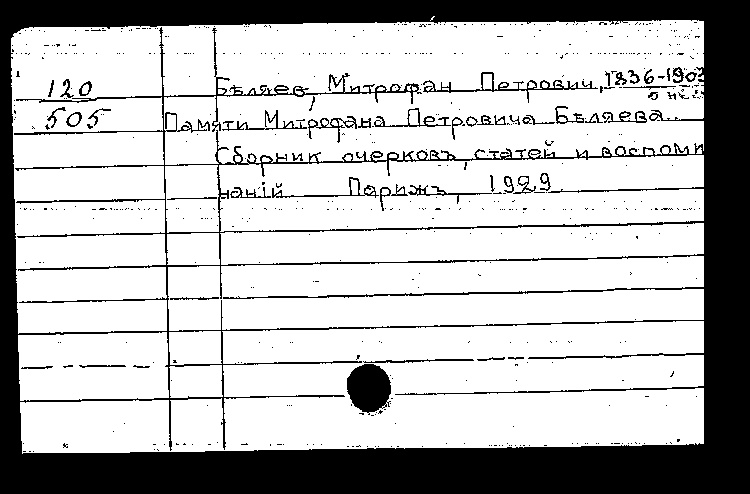 120 Бѣляев, Митрофан Петрович, 1836-1903
о нем
505 Памяти Митрофана Петровича Бѣляева.
Сборник очерковъ, статей и воспоми
наній Парижъ, 1929